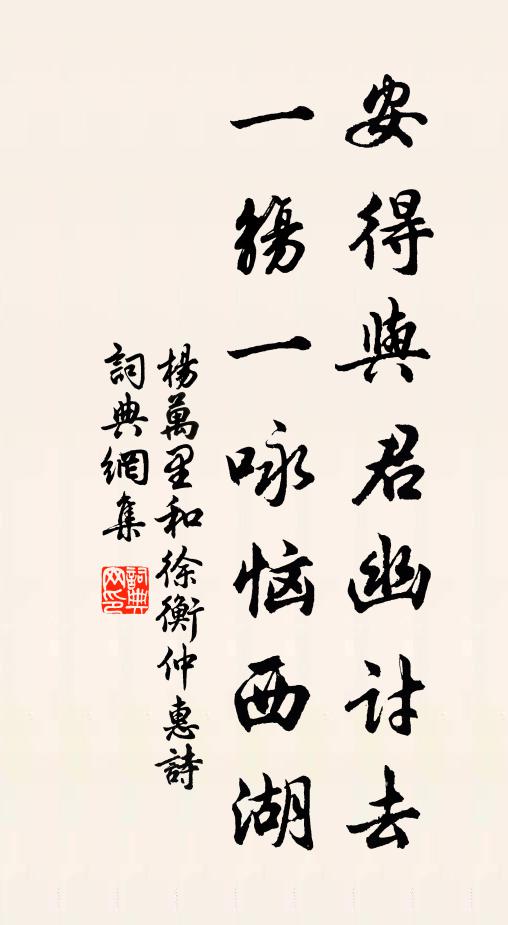 安得與君幽討去
一觴一咏恼西湖
楊萬里和徐衡仲惠詩
詞典網集
詞典网印